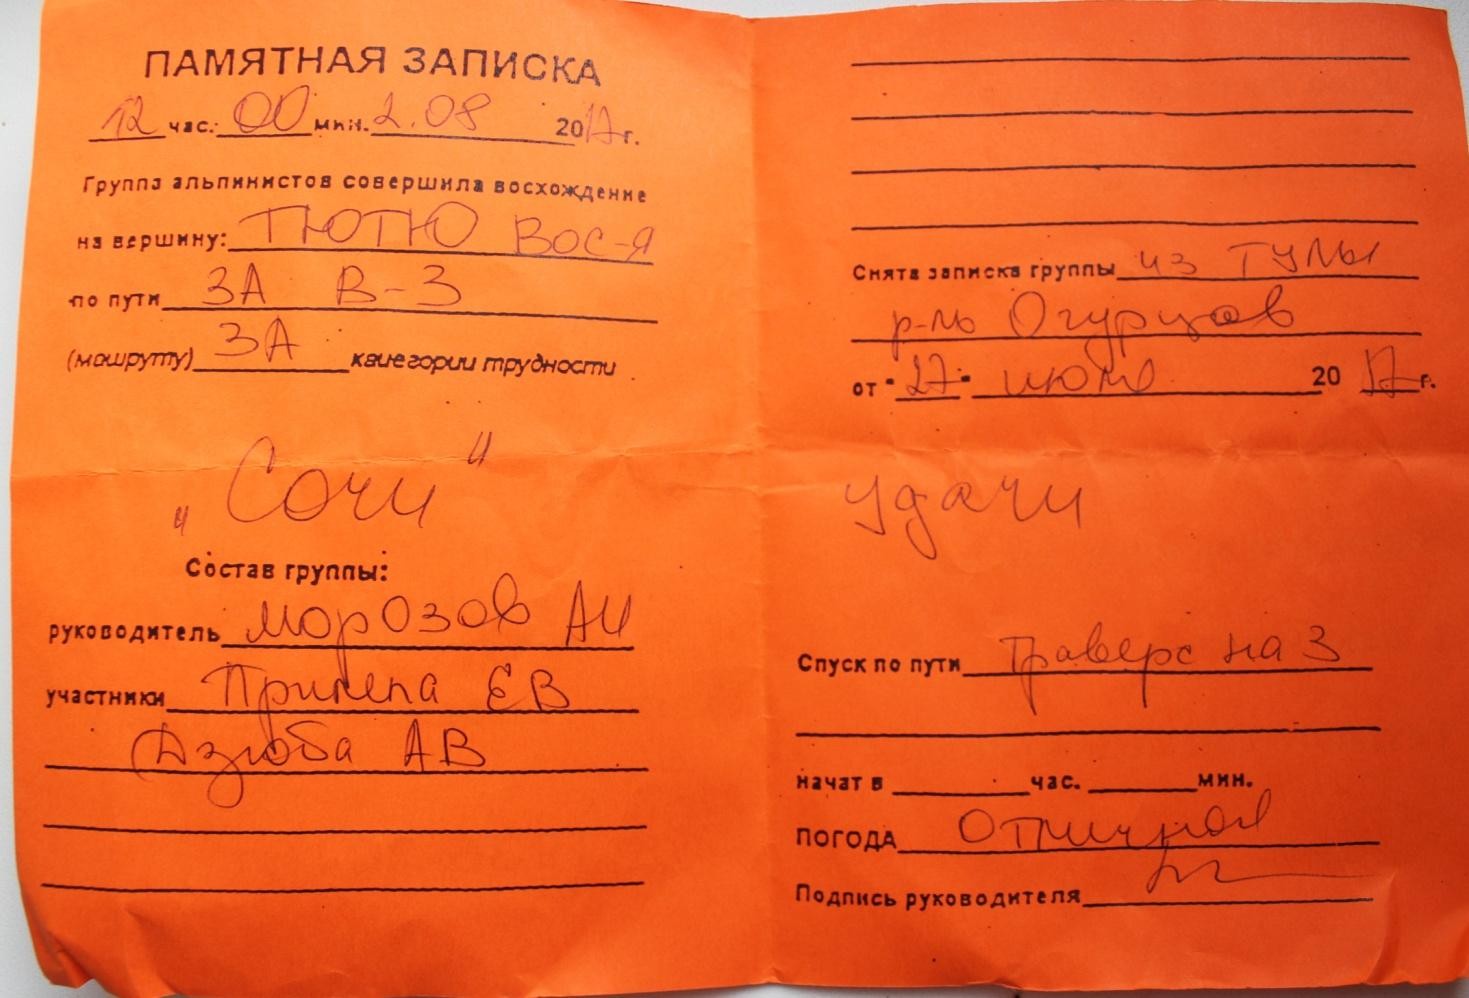 ПАМЯТНАЯ ЗАПИСКА
12 час. 00 мин. 2.08 2017 г.
Группа альпинистов совершила восхождение
на вершину: ТЮТЮ Вос-я
по пути 3А В-З
(маршруту) 3А категории трудности
"Сочи"
Состав группы:
руководитель Морозов АИ
участники Прилепа ЕВ
Дзюба АВ
Снята записка группы из Тулы
р-ль Огурцов
от "27" июля 2017 г.
удачи
Спуск по пути траверс на З
начат в час. мин.
ПОГОДА Отличная
Подпись руководителя